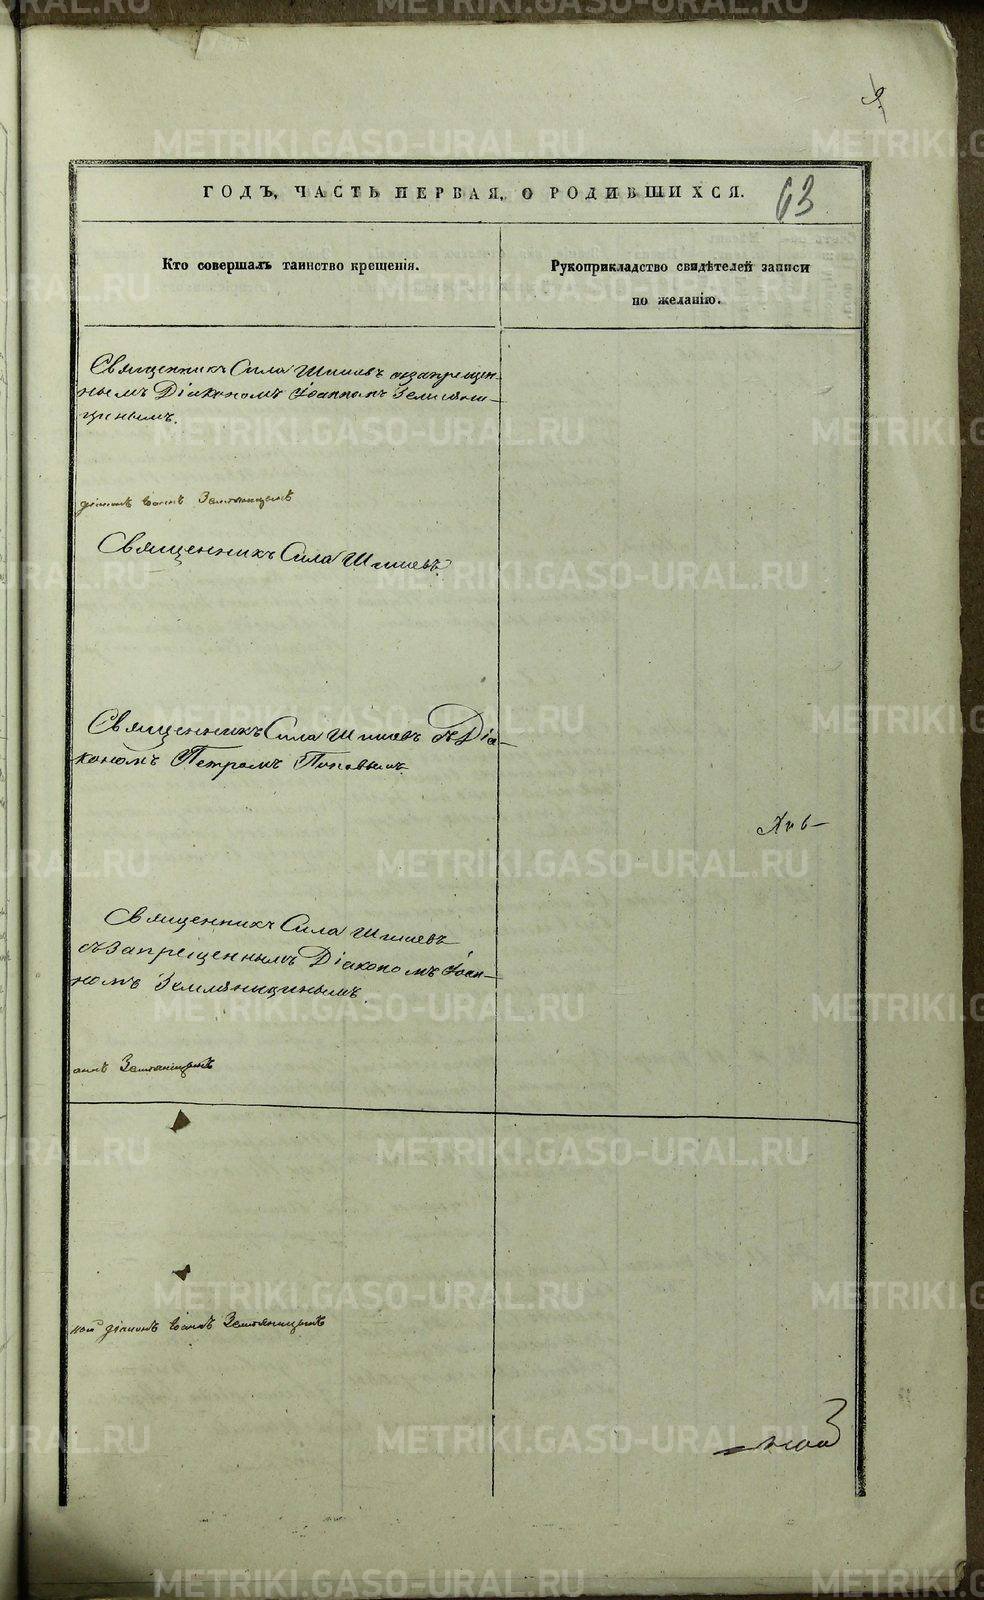 9.
ГОДЪ, ЧАСТЬ ПЕРВАЯ, О РОДИВШИХСЯ.
63
Кто совершалъ таинство крещенія.
Рукоприкладство свидѣтелей записи
по желанію.
Священникъ Сила Шишевъ съ запрещен-
нымъ Діакономъ Іоанномъ Земляни-
цинымъ.
діаконъ Іоаннъ Земляницынъ
Священникъ Сила Шишевъ.
Священникъ Сила Шишевъ съ Діа-
кономъ Петромъ Поповымъ.
Священникъ Сила Шишевъ
съ запрещеннымъ Діакономъ Іоан-
номъ Земляницинымъ.
аннъ Земляницынъ
ной діаконъ Іоаннъ Земляницынъ
METRIKI.GASO-URAL.RU